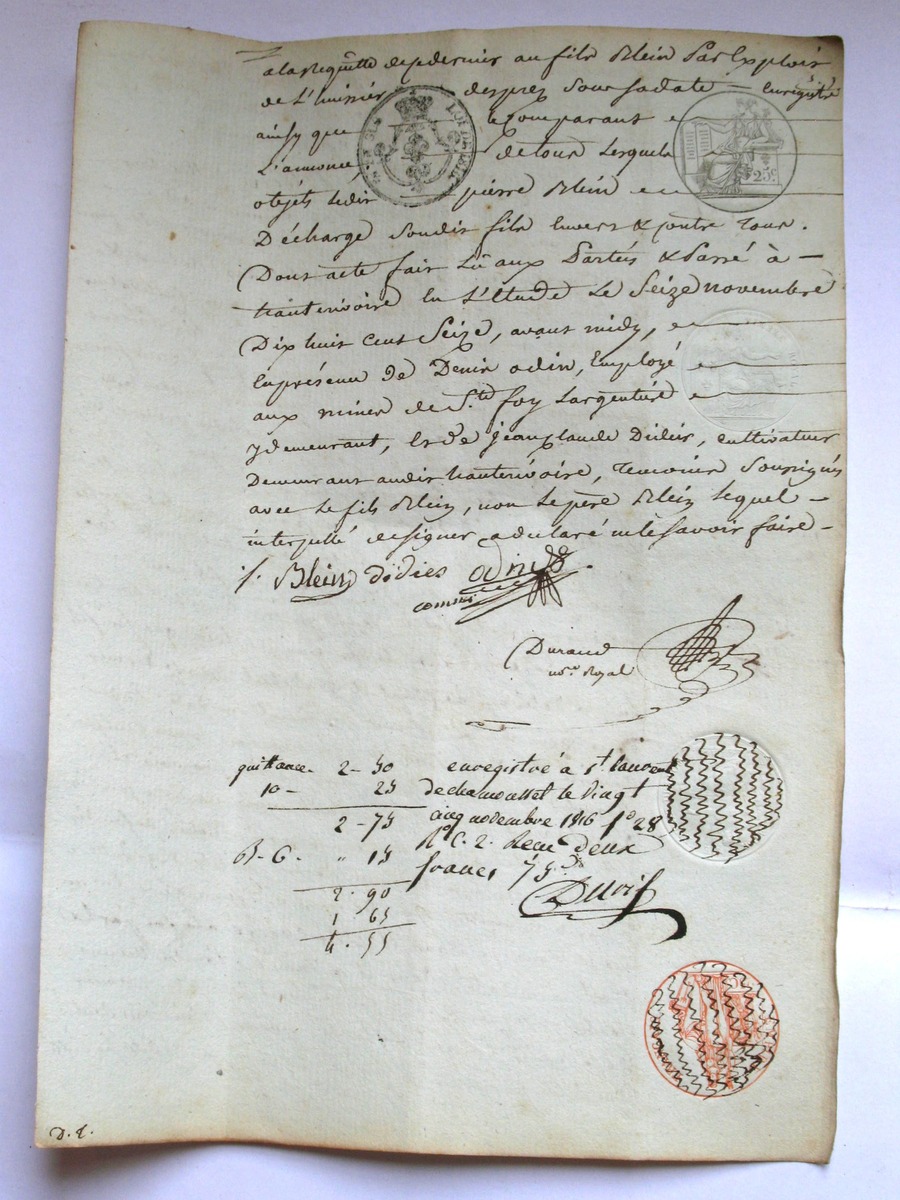 a la requette de ce dernier au fils Blein Par Exploit
de L'huissier desprez Sous sadate enregistré
ainsy que le comparant
L'annonce, de tous lesquels
objets ledit pierre Blein
Décharge Soudit fils Envers & contre Tous.
Dont acte fait Lû aux Parties & Passé à
hauterivoire En L'étude Le Seize novembre
Dix huit Cent Seize, avant midy,
En présence de Denis odin, Employé
aux mines de Ste foy Largentiere
y demeurant, & de jean claude Didier, cultivateur
Demeurant audit hauterivoire, Temoins Soussignés
avec Le fils Blein, non Le pere Blein Lequel
interpellé de signer a declaré ne le savoir faire
Blein didier odin
commis
25c
Durand
nore Royal
quittance 2-50
10- 25
2-75
S-G. " 15
2.90
1 65
4.55
enregistré à st Laurent
de chamousset le vingt
cinq novembre 1816 fo 28
Ro C. 2. Recu deux
francs 75
D. L.